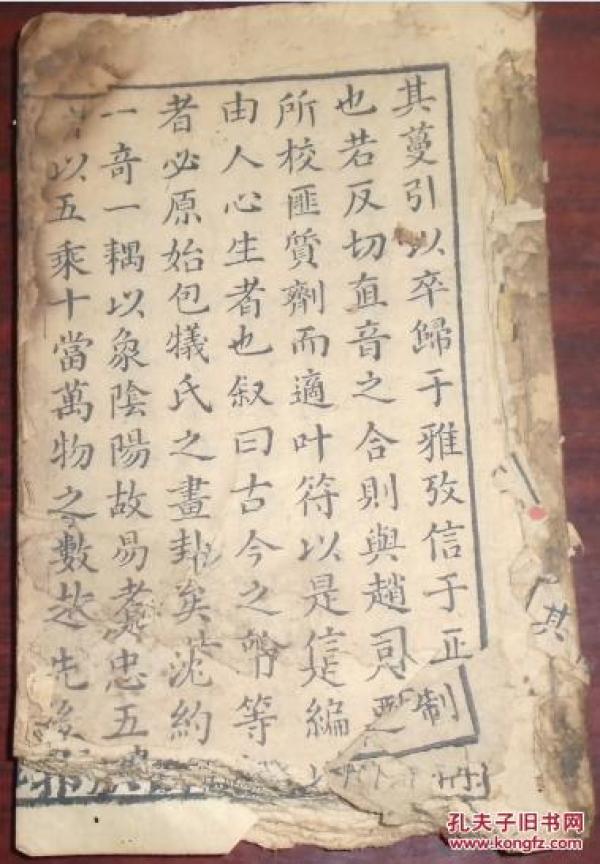 其蔓引以卒歸于雅攷信于正制
也若反切直音之合則與趙司
所校匪質劑而適叶符以是信是編
由人心生者也叙曰古今之 等
者必原始包犧氏之畫卦矣沈約
一奇一耦以象陰陽故易 忠五
以五乘十當萬物之數 先後
其
孔夫子旧书网
www.kongfz.com